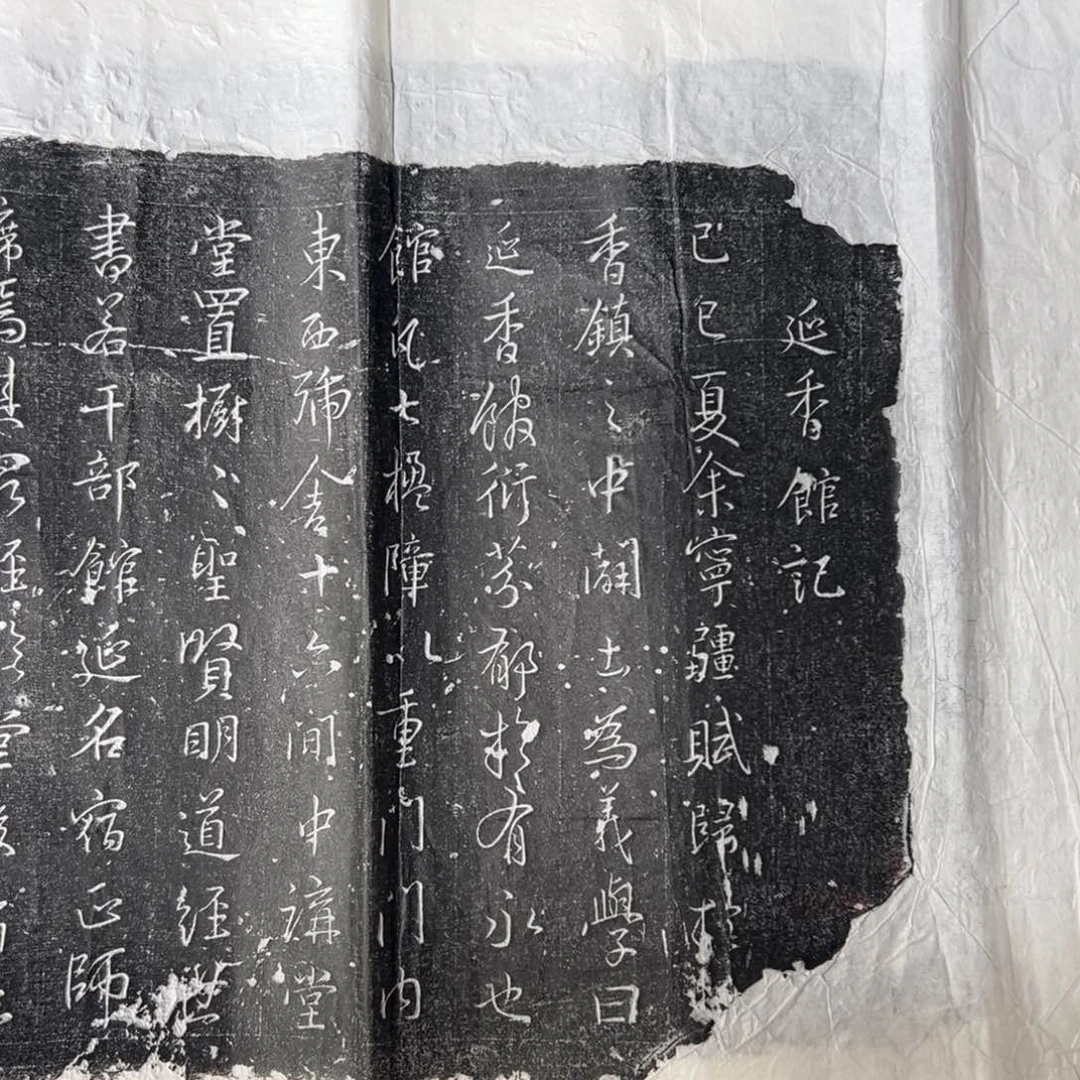 延香館記
己巳夏余寧疆賦歸於
香鎮之中闢士為義學曰
延香馥衍芬郁於有永也
館凡七楹障以重門門內
東西號舍十六間中講堂
堂置橱〻聖賢明道經世
書若干部館延名宿正師
席